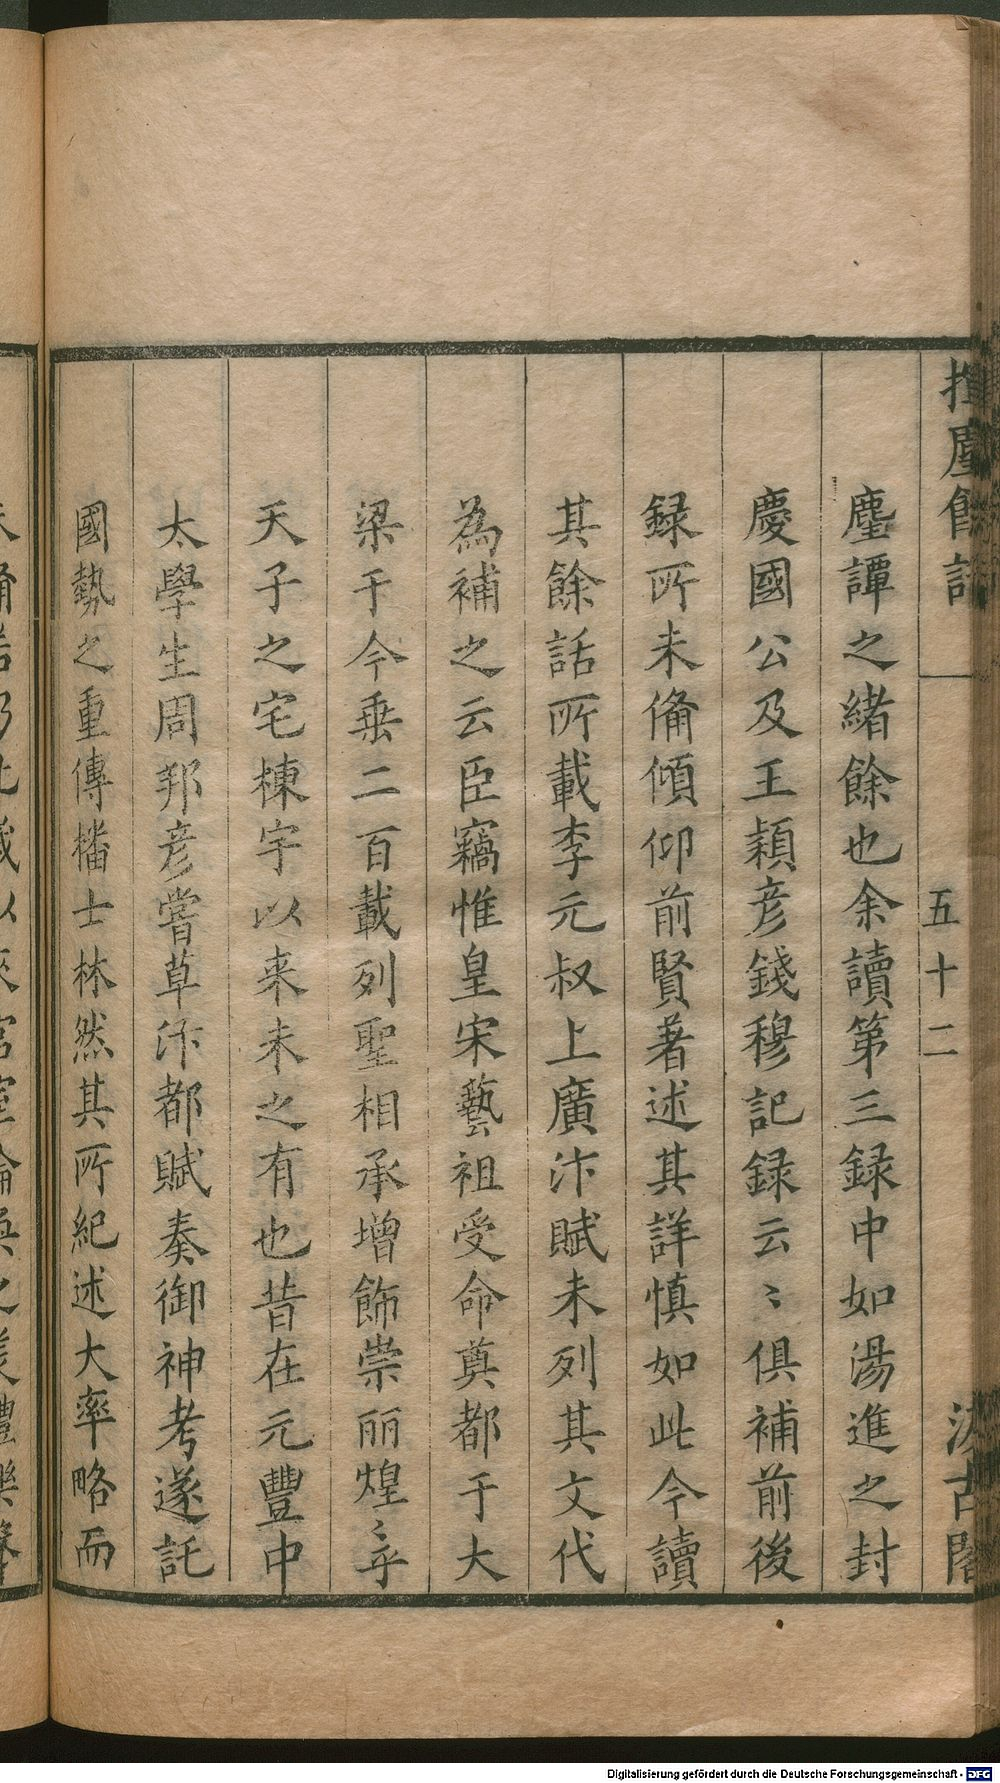 揮麈餘話
五十二
汲古閣
麈譚之緒餘也余讀第三録中如湯進之封
慶國公及王穎彦錢穆記録云〻俱補前後
録所未俻傾仰前賢著述其詳慎如此今讀
其餘話所載李元叔上廣汴賦未列其文代
為補之云臣竊惟皇宋藝祖受命奠都于大
梁于今垂二百載列聖相承增飾崇丽煌〻乎
天子之宅棟宇以来未之有也昔在元豐中
太學生周邦彦嘗草汴都賦奏御神考遂託
國勢之重傳播士林然其所紀述大率略而
Digitalisierung gefördert durch die Deutsche Forschungsgemeinschaft - DFG